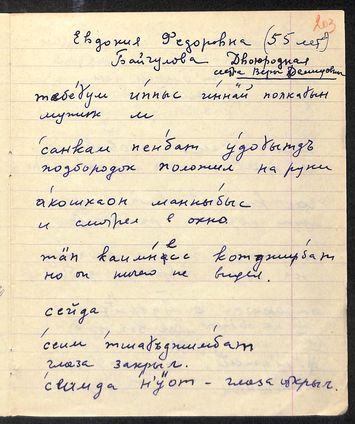 203
Евдокия Федоровна (55 лет)
Байгулова Двоюродная
сестра Веры Демидовны
тебе́ғум и́ппыс и́ннӓй полкабын
мужик м
са́нкам пе́нбат у́добытдъ
подбородок положил на руки
а́кошкаон манны́быс
и смотрел в окно.
тӓп каим́насс котджирбат
но он ничего не видел.
сейда
се́им тшабъджимбат
глаза закрыл.
се́имда н'ӱот - глаза открыл.